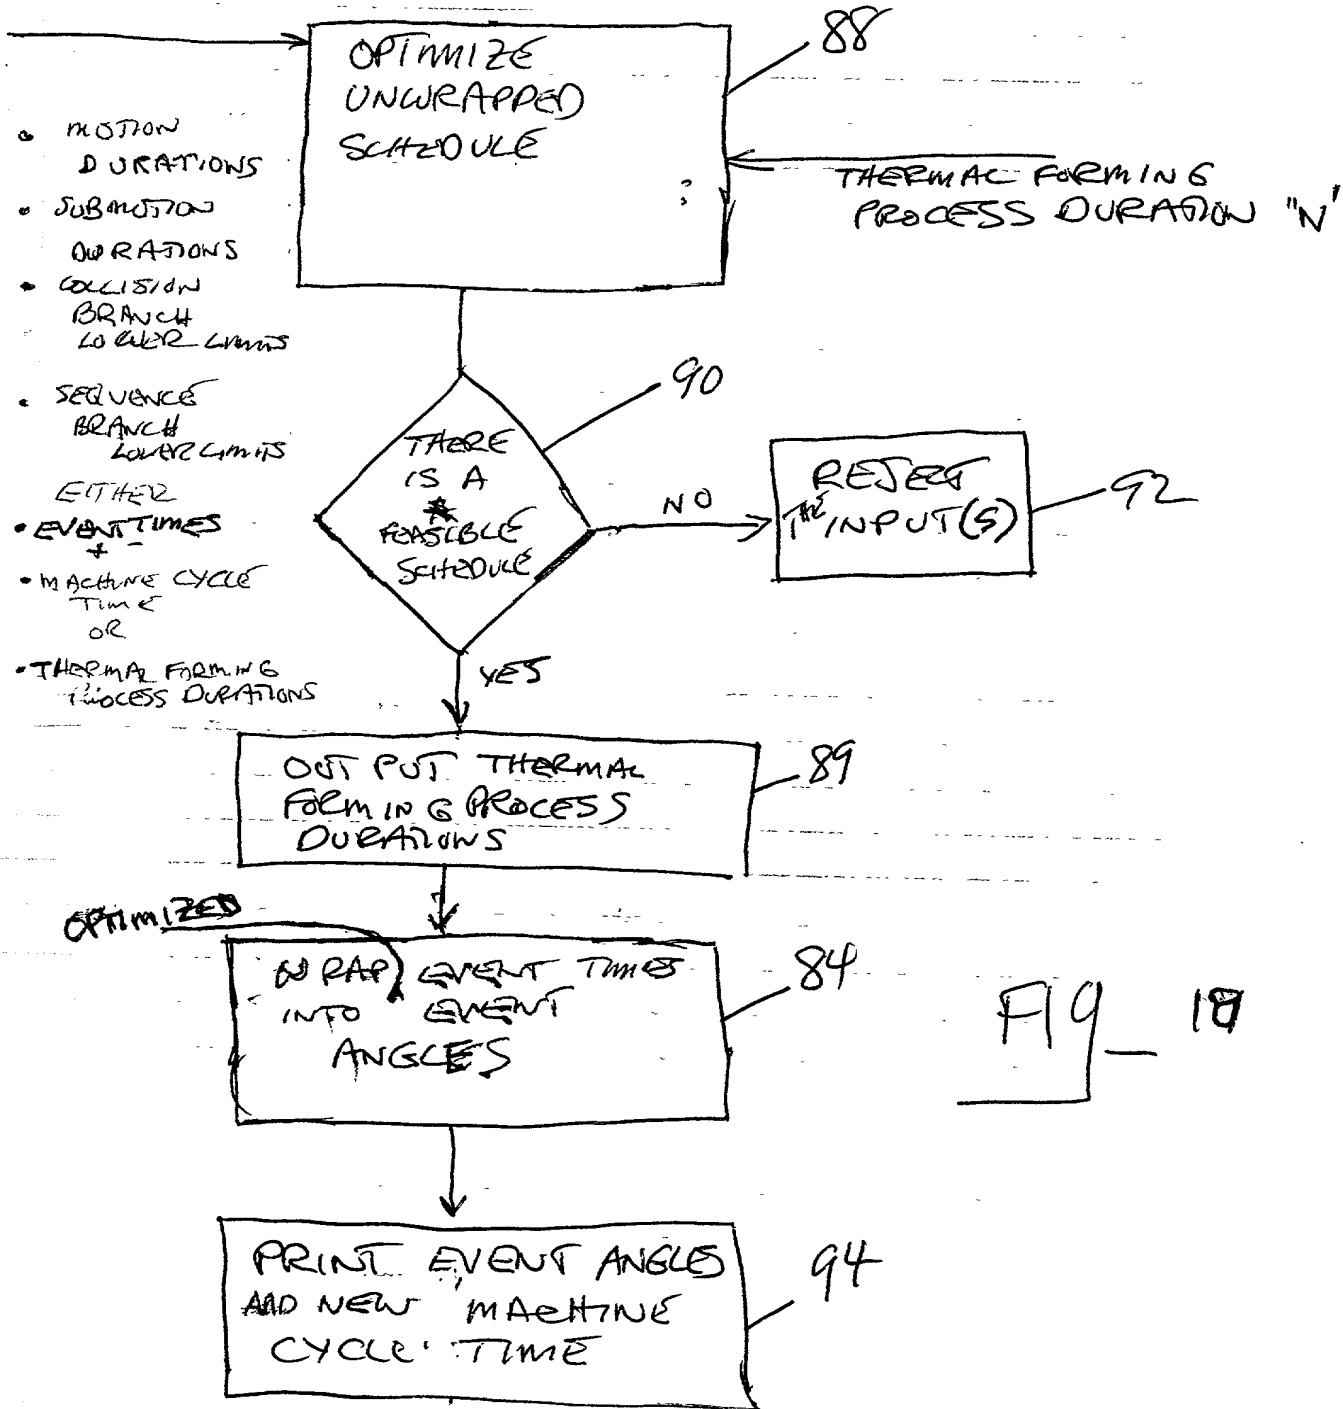 OPTIMIZE
UNWRAPPED
SCHEDULE
88
THERMAL FORMING
PROCESS DURATION "N'
• MOTION
DURATIONS
• SUBMOTION
DURATIONS
• COLLISION
BRANCH
LOWER LIMITS
• SEQUENCE
BRANCH
LOWER LIMITS
EITHER
• EVENT TIMES
+
• MACHINE CYCLE
TIME
OR
• THERMAL FORMING
PROCESS DURATIONS
90
THERE
IS A
FEASIBLE
SCHEDULE
NO
REJECT
THE INPUT(S)
92
YES
OUTPUT THERMAL
FORMING PROCESS
DURATIONS
89
OPTIMIZED
WRAP EVENT TIMES
INTO EVENT
ANGLES
84
FIG_
PRINT EVENT ANGLES
AND NEW MACHINE
CYCLE TIME
94